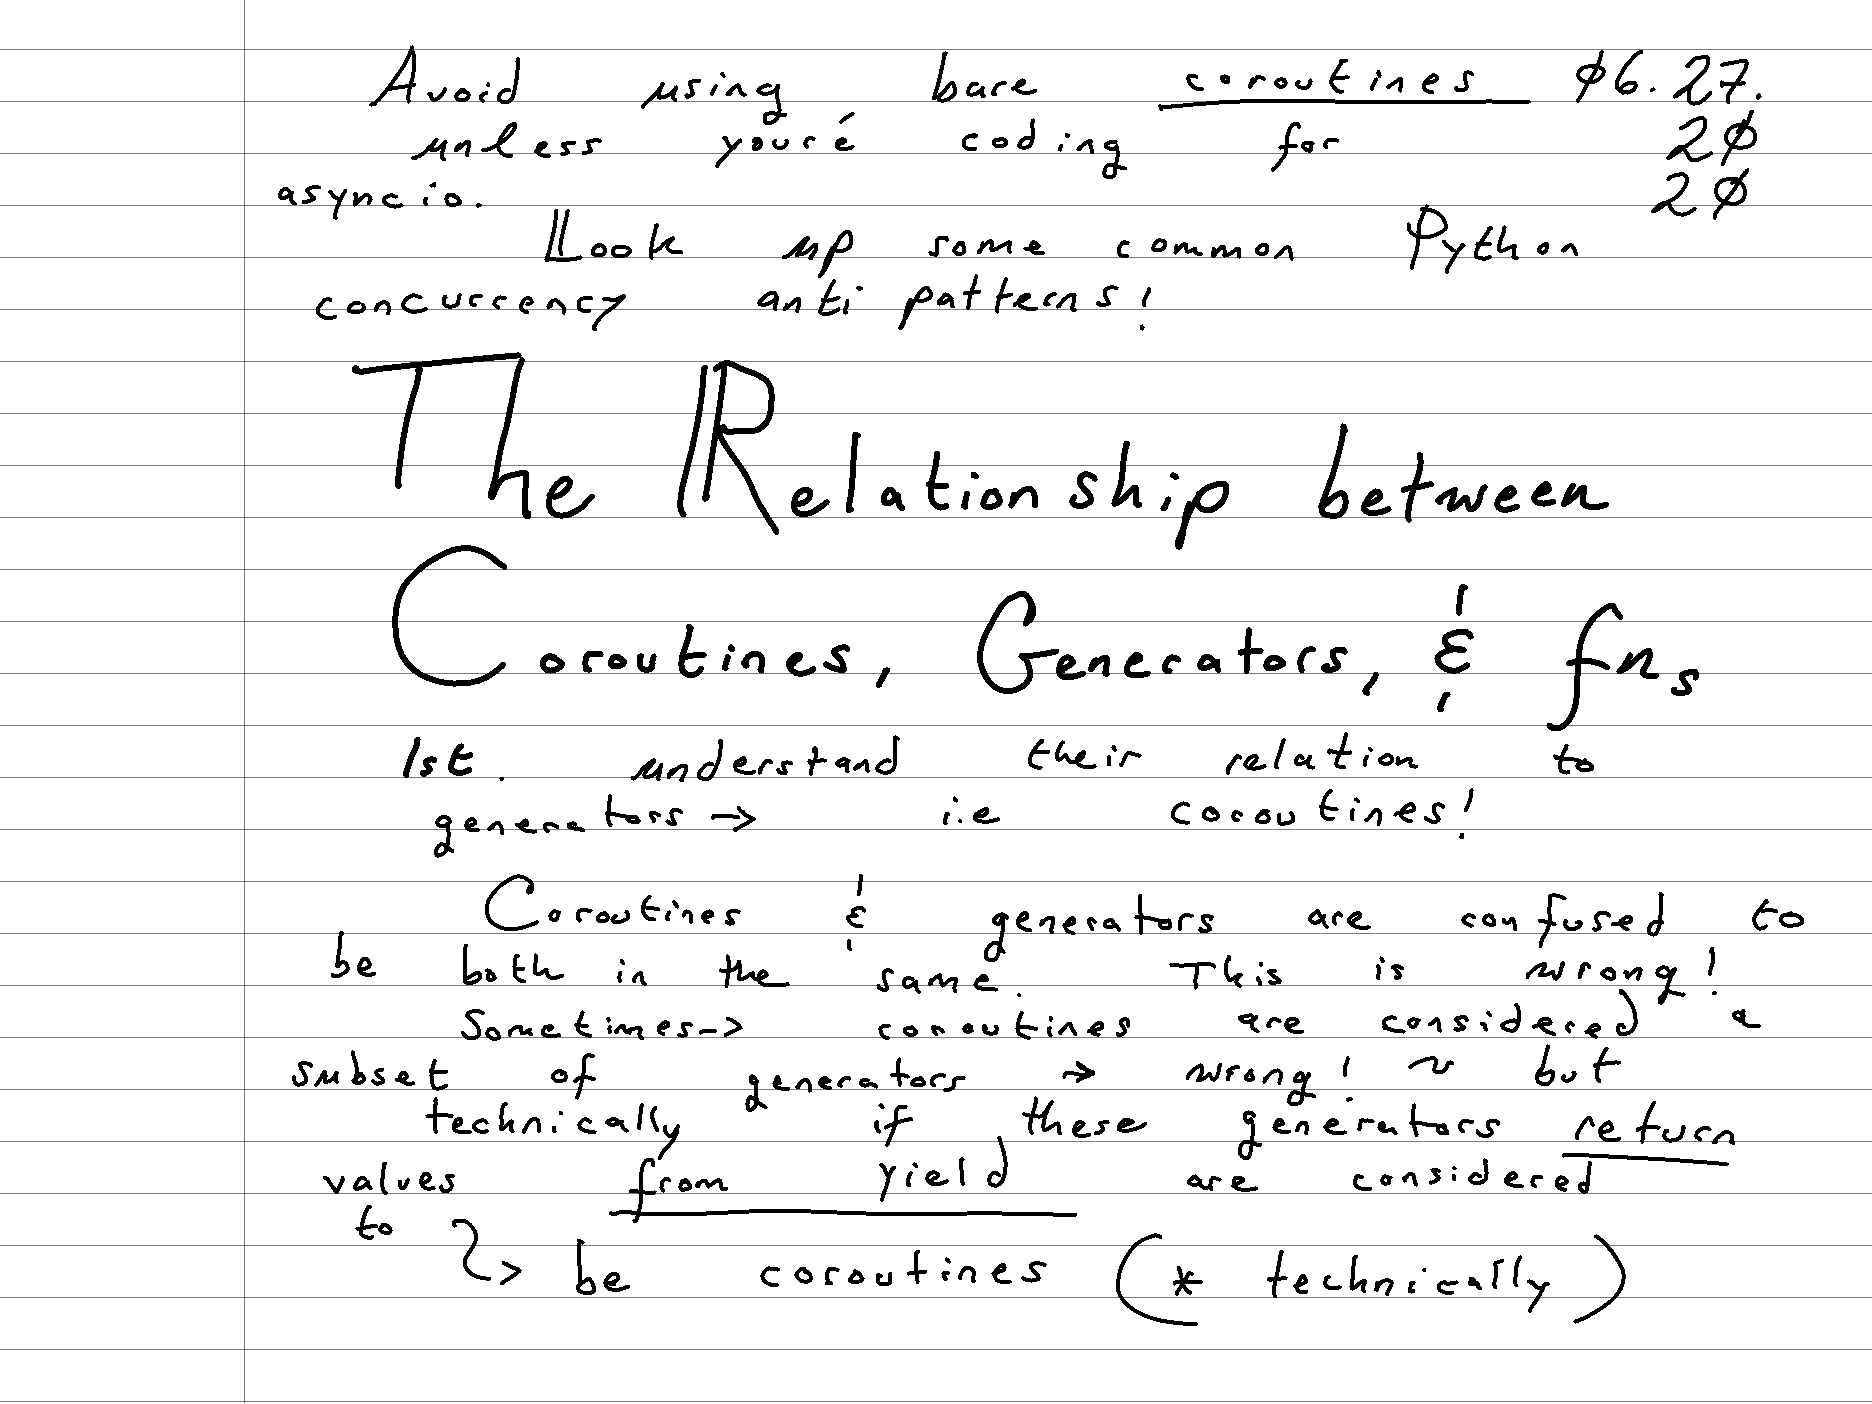 Avoid using bare coroutines 06.27.
unless you're coding for 20
asyncio. 20
Look up some common Python
concurrency anti patterns!
The Relationship between
Coroutines, Generators, & fns
1st. understand their relation to
generators → i.e coroutines!
Coroutines & generators are confused to
be both in the same. This is wrong!
Sometimes-> coroutines are considered a
subset of generators → wrong! ~ but
technically if these generators return
values from yield are considered
to
be coroutines (* technically)